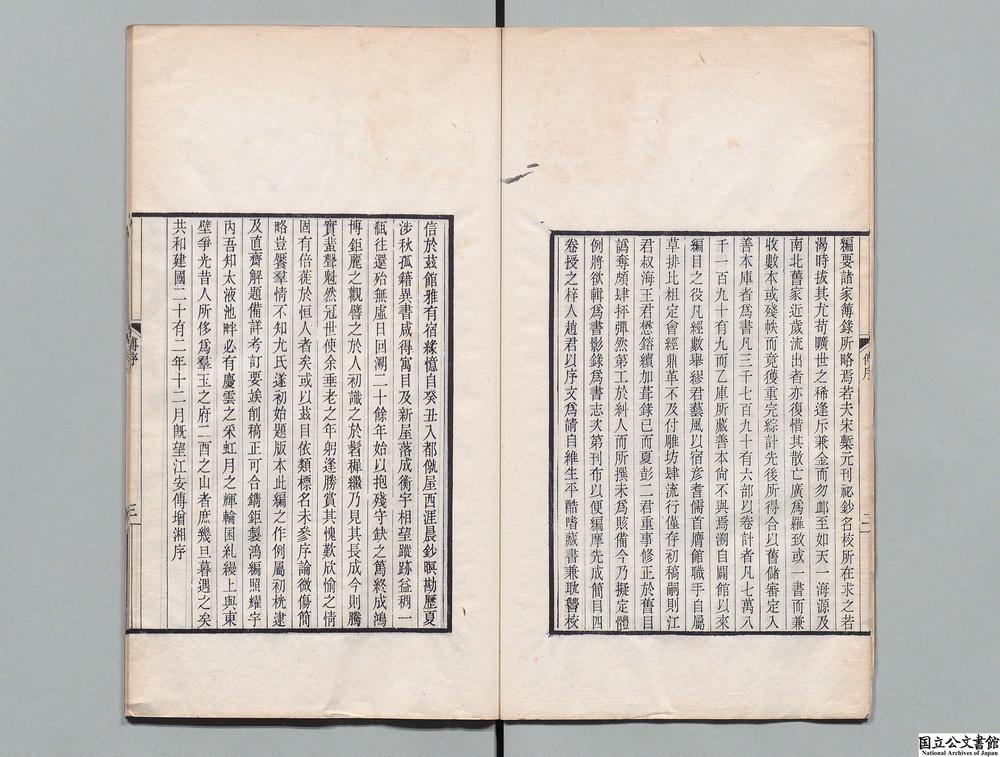 編要諸家薄錄所略焉若夫宋槧元刊祕鈔名校所在求之若
渴時拔其尤苟曠世之稀逢斥兼金而勿䘏至如天一海源及
南北舊家近歲流出者亦復惜其散亡廣爲羅致或一書而兼
收數本或殘帙而竟獲重完綜計先後所得合以舊儲審定入
善本庫者爲書凡三千七百九十有六部以卷計者凡七萬八
千一百九十有九而乙庫所藏善本尙不與焉溯自開館以來
編目之役凡經數舉繆君藝風以宿彥耆儒首膺館職手自屬
草排比粗定會經鼎革不及付雕坊肆流行僅存初稿嗣則江
君叔海王君懋鎔續加葺錄已而夏彭二君重事修正於舊目
譌奪頗肆抨彈然第工於糾人而所撰未爲賅備今乃擬定體
例將欲輯爲書影錄爲書志次第刊布以便編摩先成簡目四
卷授之梓人趙君以序文爲請自維生平酷嗜藏書兼耽讐校
傅序
二
信於茲館雅有宿緣憶自癸丑入都僦屋西涯晨鈔暝勘歷夏
涉秋孤籍異書咸得寓目及新屋落成衡宇相望蹤跡益稠一
瓻往還殆無虛日回溯二十餘年始以抱殘守缺之篤終成鴻
博鉅麗之觀譬之於人初識之於髫穉繼乃見其長成今則騰
實蜚聲魁然冠世使余垂老之年躬逢勝賞其愧歎欣愉之情
固有倍蓰於恒人者矣或以茲目依類標名未參序論微傷簡
略豈饜羣情不知尤氏遂初始題版本此編之作例屬初桄逮
及直齋解題備詳考訂要竢削稿正可合鐫鉅製鴻編照耀宇
內吾知太液池畔必有慶雲之釆虹月之輝輪囷糺縵上與東
壁爭光昔人所侈爲羣玉之府二酉之山者庶幾旦暮遇之矣
共和建國二十有二年十二月旣望江安傅增湘序
傅序
三
国立公文書館
National Archives of Japan